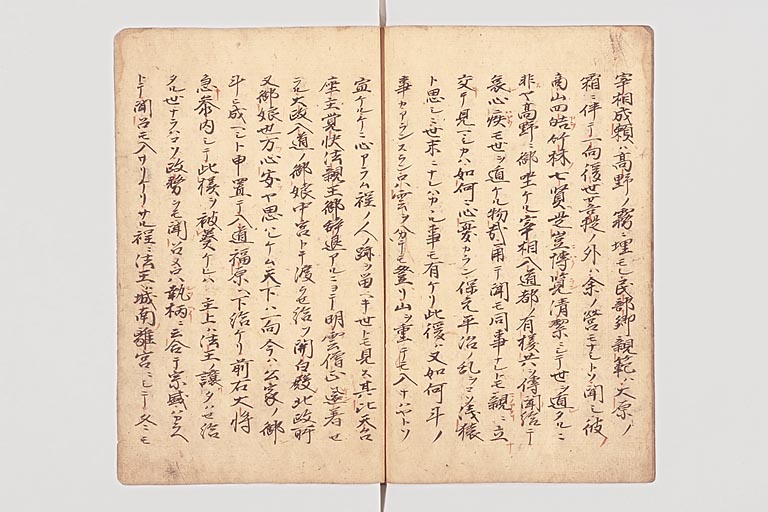 宰相成頼ハ高野ノ霧ニ埋モレ民部卿親範ハ大原ノ
霜ニ伴テ一向後世菩提ノ外ハ余ノ営モナトソ聞シ彼
商山四皓竹林七賢是豈博覧清潔ニシテ世ヲ遁タルニ
非ヤ高野ニ御坐ケル宰相入道都ノ有様共ヲ傳聞給テ
哀心疾モ世ヲ遁ケル物哉角テ聞モ同事ナレトモ親ニ立
交テ見マシカハ如何ニ心憂カラン保元平治ノ乱ヲコソ浅猿
ト思シニ世末ニナレハカヽル事モ有ケリ此後ハ又如何斗ノ
事カアランスラン雲ヲ分テモ登リ山ヲ重テモ入ナハヤトソ
宣ケルケニ心アラム程ノ人ノ跡ヲ留ヘキ世トモ見ス其比天台
座主覚快法親王御辞退アルニヨテ明雲僧正還着セ
ラル大政入道ノ御娘中宮トテ渡ラせ給フ関白殿北政所
又御娘也万心安ヤ思ハレケム天下ハ一向今ハ公家ノ御
斗ニ成ヘシト申置テ入道福原ヘ下給ケリ前右大将
急参内シテ此様ヲ被奏ケレハ主上ハ法王ノ譲タハせ給
タル世ナラハコソ政務ヲモ聞召メ只執柄ニ云合テ宗盛ハカラヘ
トテ聞召モ入サリケリサル程ニ法王ハ城南離宮ニシテ冬モ